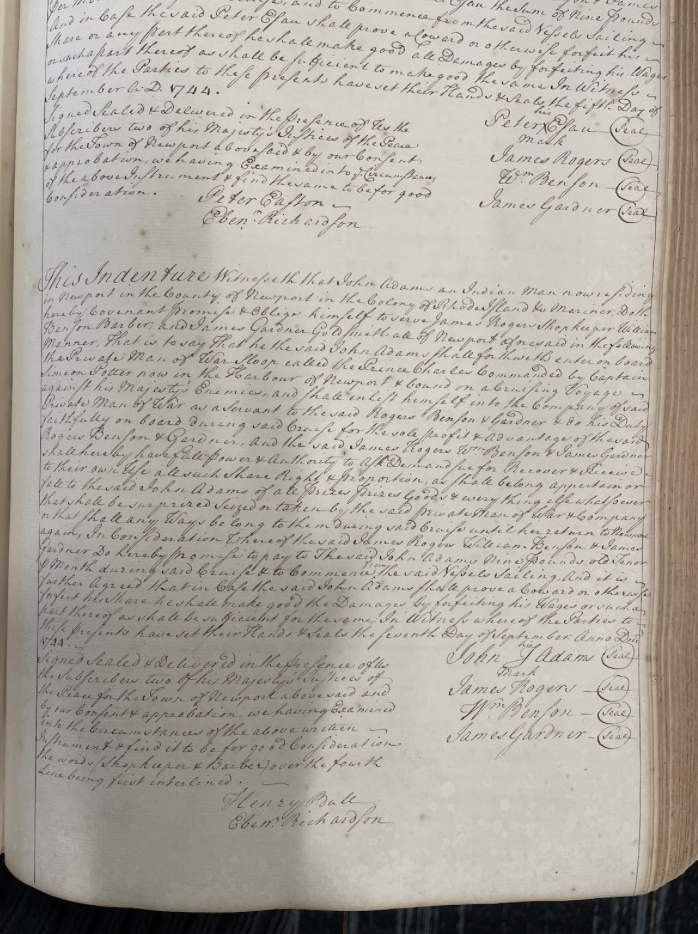 and to Commence from the said Vessels Sailing
And in Case the said Peter Esau shall prove a Coward or otherwise forfeit his
Share or any part thereof he shall make good all Damages by forfeiting his Wages
or such a part thereof as shall be sufficient to make good the same In Witness
whereof the Parties to these presents have set their Hands & Seals the fifth Day of
September A:D 1744.
Signed Sealed & Delivered in the presence of Us the
Subscribers two of his Majestys Justices of the Peace
for the Town of Newport abovesaid & by our Consent
& approbation, we having Examined into ye Circumstances
of the above Instrument & find the same to be for good
Consideration.
Peter Easton
Ebenr Richardson
his
Peter X Esau Seal
mark
James Rogers Seal
Wm Benson Seal
James Gardner Seal
This Indenture Witnesseth that John Adams an Indian Man now residing
in Newport in the County of Newport in the Colony of Rhode Island &c Mariner, Doth
hereby Covenant Promise & Oblege himself to serve James Rogers Shopkeeper William
Benson Barber, and James Gardner Goldsmith all of Newport aforesaid in the following
Manner, That is to say That he the said John Adams shall forthwith enter on board
the Private Man of War Sloop called the Prince Charles Commanded by Captain
Simeon Potter now in the Harbour of Newport & bound on a Cruising Voyage
against his Majestys Enemies, and shall enlist himself into the Company of said
Private Man of War as a Servant to the said Rogers Benson & Gardner & do his Duty
faithfully on board during said Cruise for the sole profit & Advantage of the said
Rogers Benson & Gardner, And the said James Rogers Wm Benson & James Gardner
shall hereby have full Power & Authority to Ask Demand sue for Recover & Receive
to their own Use all such Share Right & Proportion, as shall belong appertain or
fall to the said John Adams of all Prizes Prizes Goods & every thing else whatsoever
that shall be surprized seized or taken by the said private Man of War & Company
or that shall any Ways belong to them during said Cruise until her return to Newport
again, In Consideration Whereof the said James Rogers William Benson & James
Gardner Do hereby promise to pay to The said John Adams Nine Pounds old Tenor
Month during said Cruise & to Commence from the said Vessels Sailing. And it is
further Agreed that in Case the said John Adams shall prove a Coward or otherwise
forfeit his Share he shall make good the Damages by forfeiting his Wages or such a
part thereof as shall be sufficient for the same. In Witness where of the Parties to
these Presents have set their Hands & Seals the seventh Day of September Anno Dni
1744.
Signed Sealed & Deliver'd in the presence of Us
the Subscribers two of his Majestys Justices of
the Peace for the Town of Newport abovesaid and
by our Consent & approbation, we having Examined
into the Circumstances of the above writen
Instrument & find it to be for good Consideration
the words (Shopkeeper & Barber) over the fourth
Line being first interlined.
Henry Bull
Ebenr Richardson
his
John Adams Seal
mark
James Rogers Seal
Wm Benson Seal
James Gardner Seal